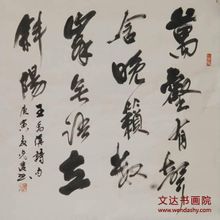 萬壑有聲
含晚籟數
峯無語立
斜陽
王禹偁詩句
庚寅
文达书画院
www.wendashy.com